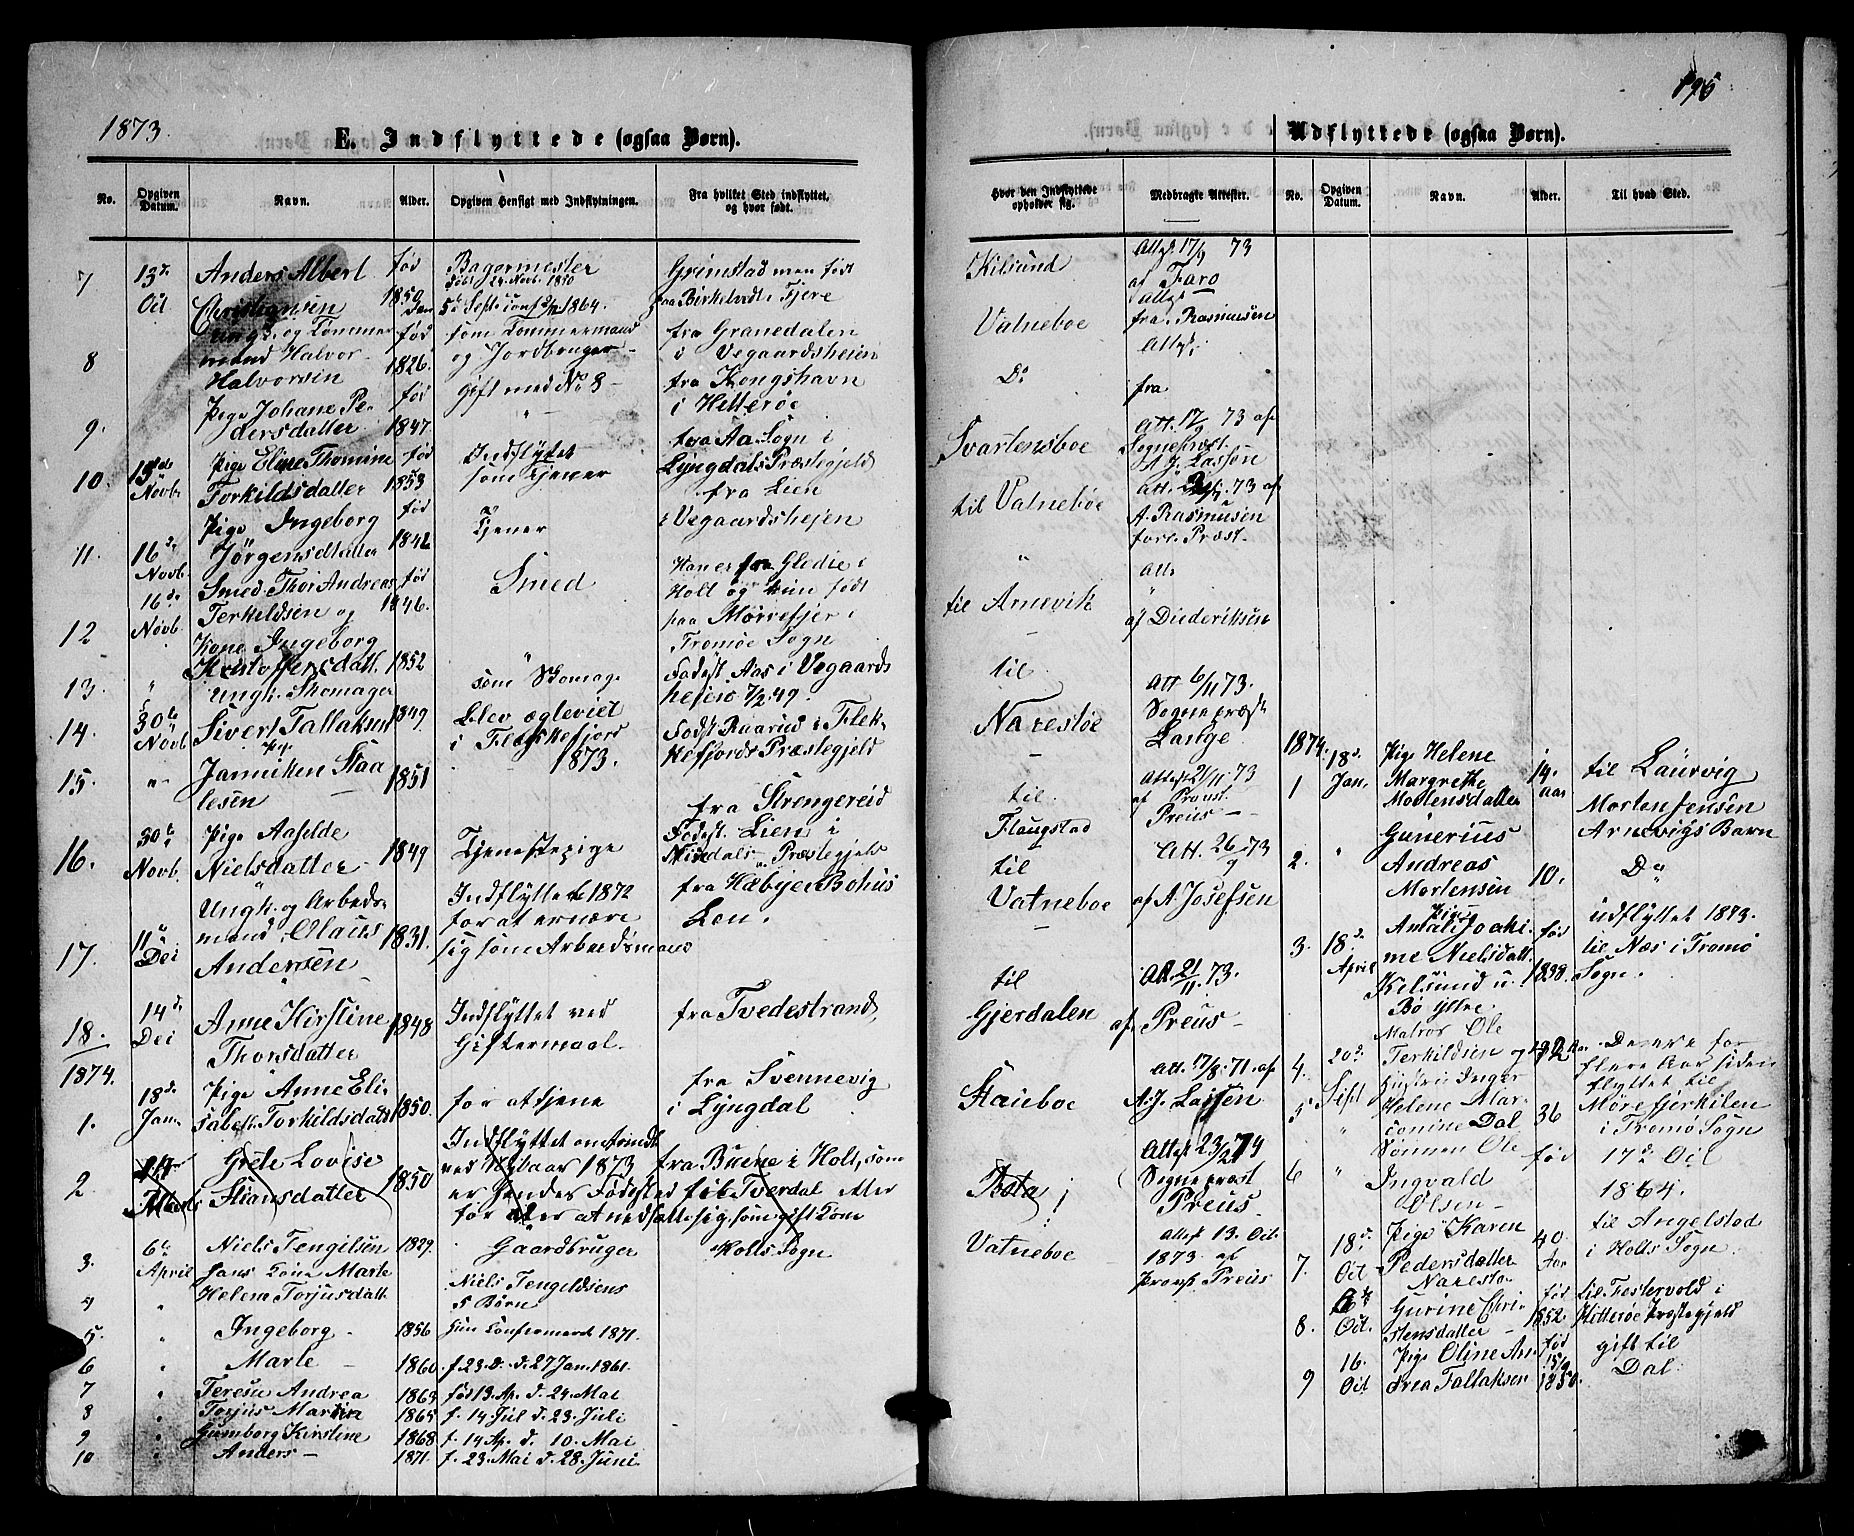 1873.
E. Indflyttede (ogsaa Børn).
No.
Opgiven Datum.
Navn.
Alder.
Opgiven Hensigt med Indflytningen.
Fra hvilket Sted indflyttet, og hvor født.
7
13de
Oct
Anders Albert
Christiansen
født
1850
Bagermester
Grimstad men født
fra Birkelvedt i Fjere
8
Ungk. og Tømmer
mand Halvor
Halvorsen
født
1826.
som Tømmermand
og Jordbruger
fra Granedalen
i Vegaardsheien
9.
Pige Johane Pe-
dersdatter
født
1847.
Gift med No 8 -
fra Kongshavn
i Hitterøe
10.
13de
Novb.
Pige Eline Thomine
Torkildsdatter
født
1853
Indflytet
som tjener
fra Aa Sogn i
Lyngdals Præstegjeld
11.
16de
Novb.
Pige Ingeborg
Jørgensdatter
født
1842
Tjener
fra Lien
i Vegaardshejen
12
16de
Novb.
Smed Thor Andreas
Terkildsen og
Kone Ingeborg
Kristoffersdatt.
født
1846.
1852
Smed
Han er fra Gledie i
Holt og hun født
paa Mørrefjer i
Tromøe Sogn
13.
"
Ungk. Skomager
Sivert Tallaksen
1849.
som Skomage
Fødest. Aas i Vegaards
heien 7/2 49.
14.
30te
Novb
15.
"
Janniken Staa
lesen
1851
1873.
Fødst Raarud i Flek-
kefjords Præstegjeld
16.
30te
Novb.
Pige Aaselde
Nielsdatter
1849
Tjenestepige
fra Strengereid
Fødest. Lien i
Nisedals Præstegjeld
17.
11te
Dec
Ungk. og Arbeds-
mand Olaus
Andersen
1831.
Indflyttet 1872
for at ernære
sig som Arbeidsmand
fra Kæbyer Bohus
Len.
18.
14de
Dec
Anne Kirstine
Thorsdatter
1848
Indflyttet ved
Giftermaal.
fra Tvedestrand,
1874.
1.
18de
Jan.
Pige Anne Eli-
sabeth Torkildsdatt
1850.
for at tjene
fra Svennevig
i Lyngdal
2
Grete Lovise
Stiansdatter
1850
Indflyttet omtrindt
ved Nytaar 1873
er hendes Fødested
fra Buene i Holt, som
3.
6te
April
Niels Tengilsen
1829.
Gaardbruger
Holts Sogn
4
"
hans Kone Marte
Helene Torjusdatt
Niels Tengeldsens
5 Børn
5.
"
Ingeborg -
1856
hun confirmerd 1871.
6
"
Marte -
1860
f. 23. D. d. 27 Jan. 1861.
7
"
Teresie Andrea
1863
fød 13. Ap. d. 24. Mai
8
"
Torjus Martin
1865
f. 14 Jul d. 23. Juli
9
"
Gumborg Kirstine
1868
f. 14 Ap. d. 10. Mai
10
"
Anders -
1871.
f. 23. Mai d. 28. Juni.
Udflyttede (ogsaa Børn).
Hvor den Indflyttede opholder sig.
Medbragte Attester.
No.
Opgiven Datum.
Navn.
Alder.
Til hvad Sted.
Kilsund
Attest 17/9 73
af Faro
Vatneboe
Attest
fra Rasmusen
Do
Attest
fra
Svartensboe
Att. 17/9 73 af
Sogneprest.
A. J. Lassen
til Vatneboe
73 af
A. Rasmusen
forl. Præst.
til Arnevik
Att.
af Diederiksen
til
Narestøe
Att 6/11 73.
Sognepræst
Lange
til
Flaugstad
Attest 21/11 73
af Provst.
Preus -
til
Vatneboe
Att. 26/9 73
af A. Josefsen
til
Gjerdalen
Att 21/11 73.
af Preus -
Staieboe
Att. 17/8 71. af
A. J. Lassen
Testa
Attest 23/2 74
Sogneprest
Preus.
Vatneboe
Attest 13. Oct.
1873 af
Provst Preus
1874.
1
18d.
Jan.
Pige Helene
Margrethe
Mortensdatter
14.
aar
til Laurvig
Morten Jensen
Arnevigs Barn
2.
"
Gunerius
Andreas
Mortensen
10.
Do
3.
18d.
April
Pige
Amali Joaki-
me Nielsdatt.
Kilsund u.
Bø Ytre
født
1838.
udflyttet 1873.
til Næs i Tromø
Sogn.
4.
20d.
Sept
Matros Ole
Terkildsen og
Disse for
flere Aar siden
flyttet til
5
"
Hustru Inger
Helene Mar-
Dal
36
Mørefjerkilen
i Tromø Sogn
6
"
Sønnen Ole
Ingvald
Olsen -
født
17de Oct
1864.
7.
18d.
Oct
Pige Karen
Pedersdatter
Naresto
40
Aar
til Angelstad
i Holts Sogn.
8.
6te
Oct.
Gurine Chri-
stensdatter -
født
1852.
til Fostervold i
Hitterøe Præstegjeld
9
16.
Oct
Pige Oline An-
drea Tallaksen
født
15/9
1850.
gift til
Dal.